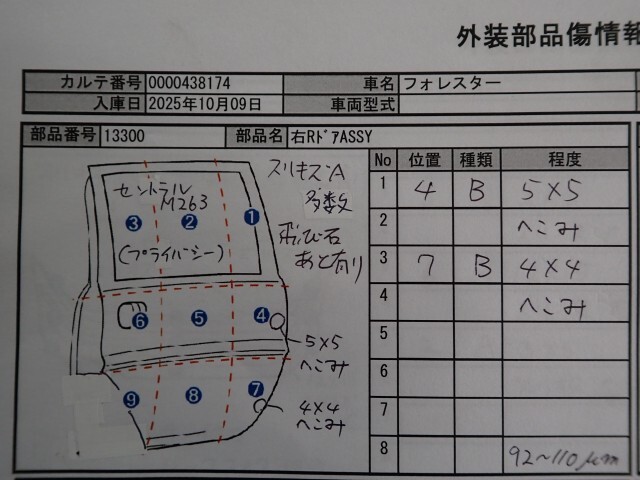 外装部品傷情報
カルテ番号 0000438174 車名 フォレスター
入庫日 2025年10月09日 車両型式
部品番号 13300 部品名 右RドアASSY
セントラル
M263
(プライバシー)
スリキズA
多数
飛び石
あと有り
3 2 1
6 5 4
9 8 7
5×5
へこみ
4×4
へこみ
No 位置 種類 程度
1 4 B 5×5
2 へこみ
3 7 B 4×4
4 へこみ
5
6
7
8 92~110μm